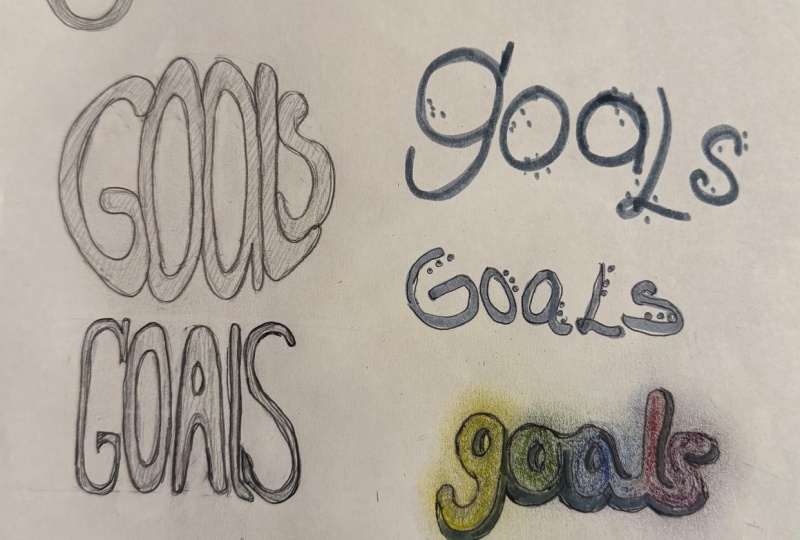 GOALS
goaLs
GOALS
GoaLs
goals